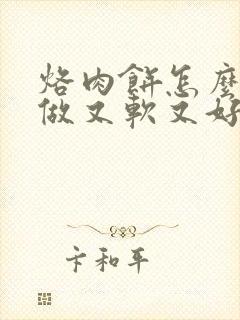 烙肉餅怎麼
做又軟又好
卞和平